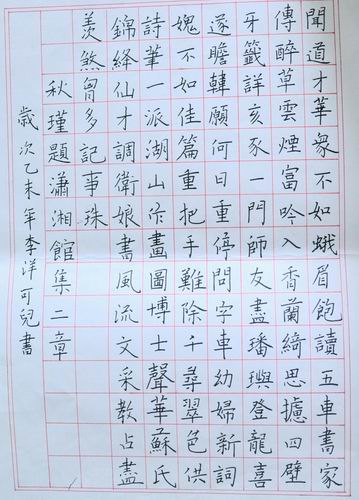 聞道才華衆不如蛾眉飽讀五車書家
傳醉草雲煙富吟入香蘭綺思攄四壁
牙籤詳亥豕一門師友盡璠璵登龍喜
遂瞻韓願何日重停問字車幼婦新詞
愧不如佳篇重把手難除千尋翠色供
詩筆一派湖山作畫圖博士聲華蘇氏
錦絳仙才調衛娘書風流文采教占盡
羨煞胷多記事珠
秋瑾題瀟湘館集二章
歲次乙未年李洋可兒書